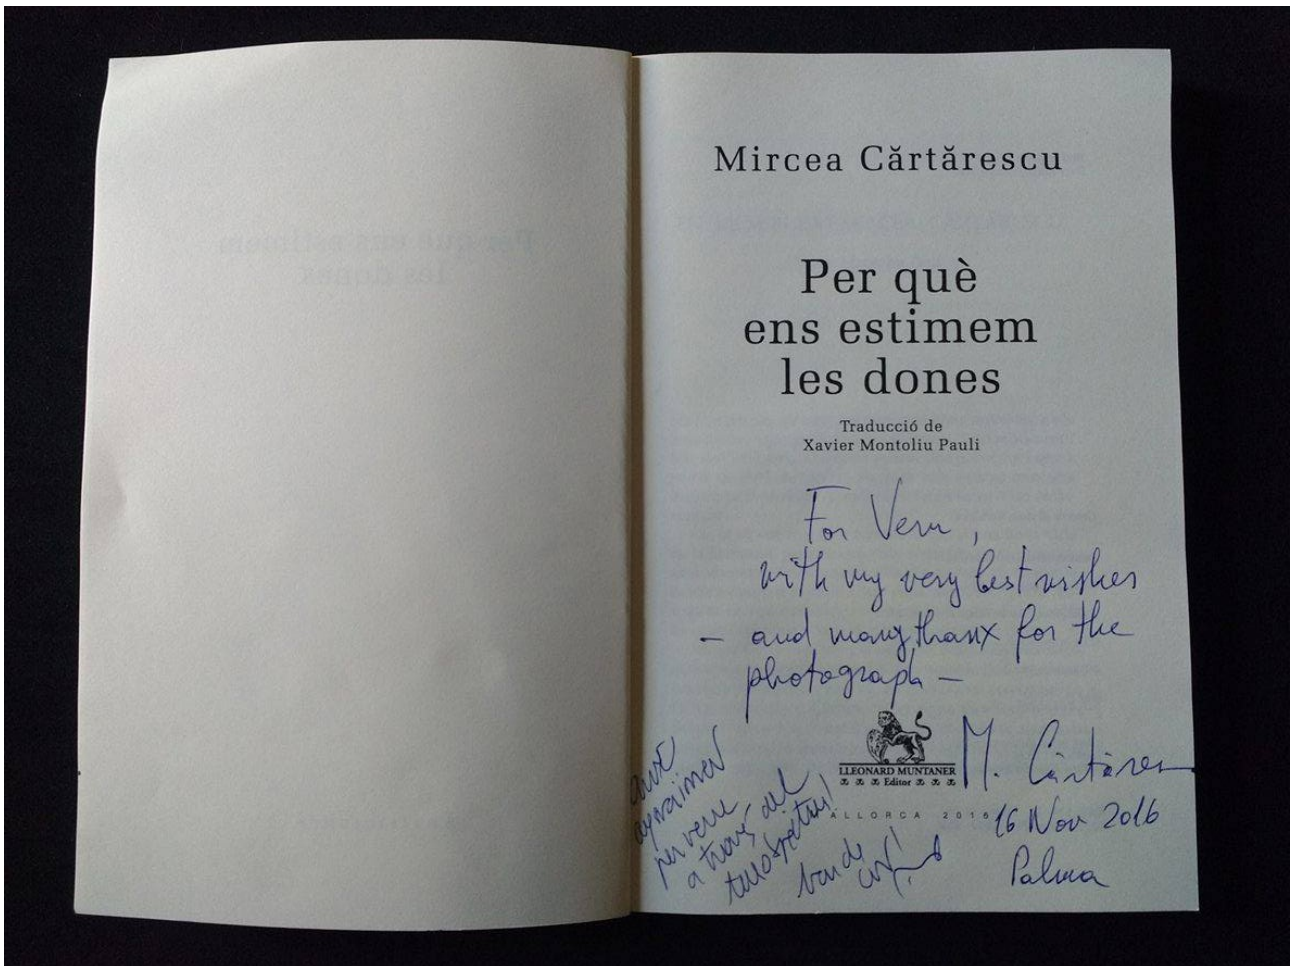 Mircea Cărtărescu
Per què
ens estimem
les dones
Traducció de
Xavier Montoliu Pauli
For Veru,
with my very best wishes
— and many thanx for the
photograph —
LLEONARD MUNTANER
Editor
ALLORCA 2016
M. Cărtărescu
16 Nov 2016
Palma
per veure
a través del